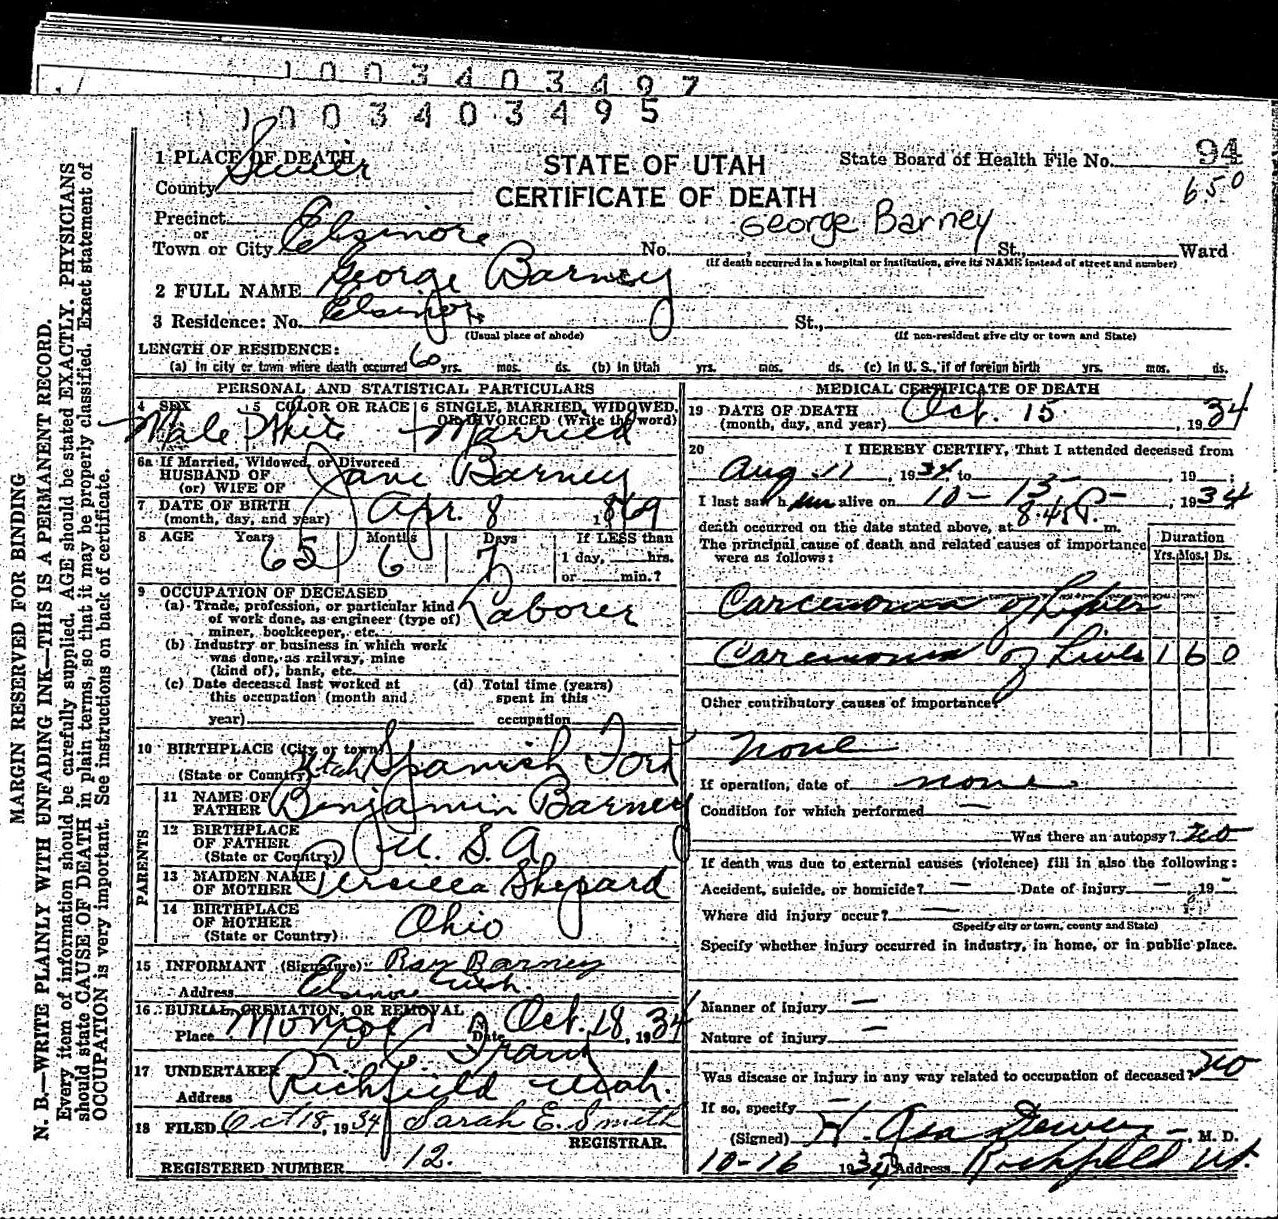 1003403497
1003403495
1 PLACE OF DEATH
County Sevier
STATE OF UTAH
CERTIFICATE OF DEATH
State Board of Health File No. 94
650
Precinct
or
Town or City Elsinore No. St., Ward
George Barney
(If death occurred in a hospital or institution, give its NAME instead of street and number)
2 FULL NAME George Barney
3 Residence: No. Elsinore St.,
(Usual place of abode) (If non-resident give city or town and State)
LENGTH OF RESIDENCE:
(a) In city or town where death occurred 6 yrs. mos. ds. (b) In Utah yrs. mos. ds. (c) In U. S., if of foreign birth yrs. mos. ds.
PERSONAL AND STATISTICAL PARTICULARS
4 SEX 5 COLOR OR RACE 6 SINGLE, MARRIED, WIDOWED, OR DIVORCED (Write the word)
Male White Married
6a If Married, Widowed, or Divorced
HUSBAND OF
(or) WIFE OF Jane Barney
7 DATE OF BIRTH
(month, day, and year) Apr. 8 1869
8 AGE Years Months Days If LESS than
65 6 7 1 day, hrs.
or min.?
9 OCCUPATION OF DECEASED
(a) Trade, profession, or particular kind
of work done, as engineer (type of)
miner, bookkeeper, etc. Laborer
(b) Industry or business in which work
was done, as railway, mine
(kind of), bank, etc.
(c) Date deceased last worked at
this occupation (month and
year)
(d) Total time (years)
spent in this
occupation
10 BIRTHPLACE (City or town)
(State or Country) Utah Spanish Fork
PARENTS
11 NAME OF
FATHER Benjamin Barney
12 BIRTHPLACE
OF FATHER
(State or Country) U. S. A
13 MAIDEN NAME
OF MOTHER Shepard
14 BIRTHPLACE
OF MOTHER
(State or Country) Ohio
15 INFORMANT (Signature) Ray Barney
Address Elsinore Utah
16 BURIAL, CREMATION, OR REMOVAL
Place Monroe Date Oct. 18, 1934
17 UNDERTAKER
Address Richfield Utah.
18 FILED Oct 18, 1934 Sarah E. Smith
REGISTRAR.
REGISTERED NUMBER 12.
MEDICAL CERTIFICATE OF DEATH
19 DATE OF DEATH
(month, day, and year) Oct. 15, 1934
20 I HEREBY CERTIFY, That I attended deceased from
Aug 11, 1934, to 19 ;
I last saw him alive on 10-13-, 1934
death occurred on the date stated above, at 8:45 P. m.
The principal cause of death and related causes of importance
were as follows:
Duration
Yrs. Mos. Ds.
Carcenoma of
Carcenoma of Liver 1 6 0
Other contributory causes of importance?
none
If operation, date of none
Condition for which performed —
Was there an autopsy? no
If death was due to external causes (violence) fill in also the following:
Accident, suicide, or homicide? — Date of injury — , 19 -
Where did injury occur? —
(Specify city or town, county and State)
Specify whether injury occurred in industry, in home, or in public place.
Manner of injury —
Nature of injury —
Was disease or injury in any way related to occupation of deceased? no
If so, specify —
(Signed) H. Asa Dewey, M. D.
10-16 1934 Address Richfield Ut.
MARGIN RESERVED FOR BINDING
N. B.—WRITE PLAINLY WITH UNFADING INK—THIS IS A PERMANENT RECORD.
Every item of information should be carefully supplied. AGE should be stated EXACTLY. PHYSICIANS
should state CAUSE OF DEATH in plain terms, so that it may be properly classified. Exact statement of
OCCUPATION is very important. See instructions on back of certificate.